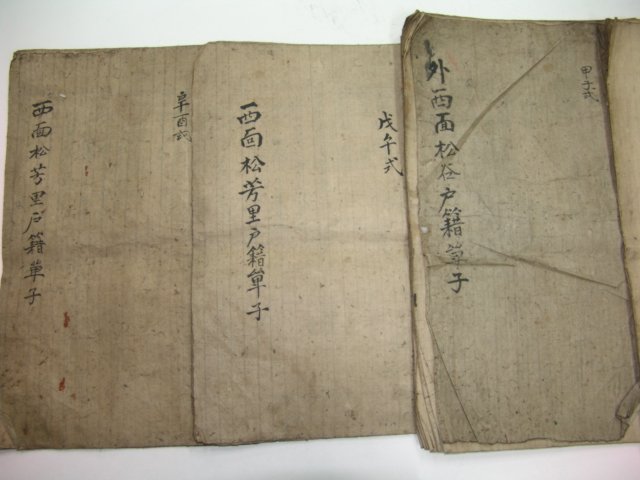 甲子式
外西面松谷戶籍單子
戊午式
西面松芳里戶籍單子
辛酉式
西面松芳里戶籍單子